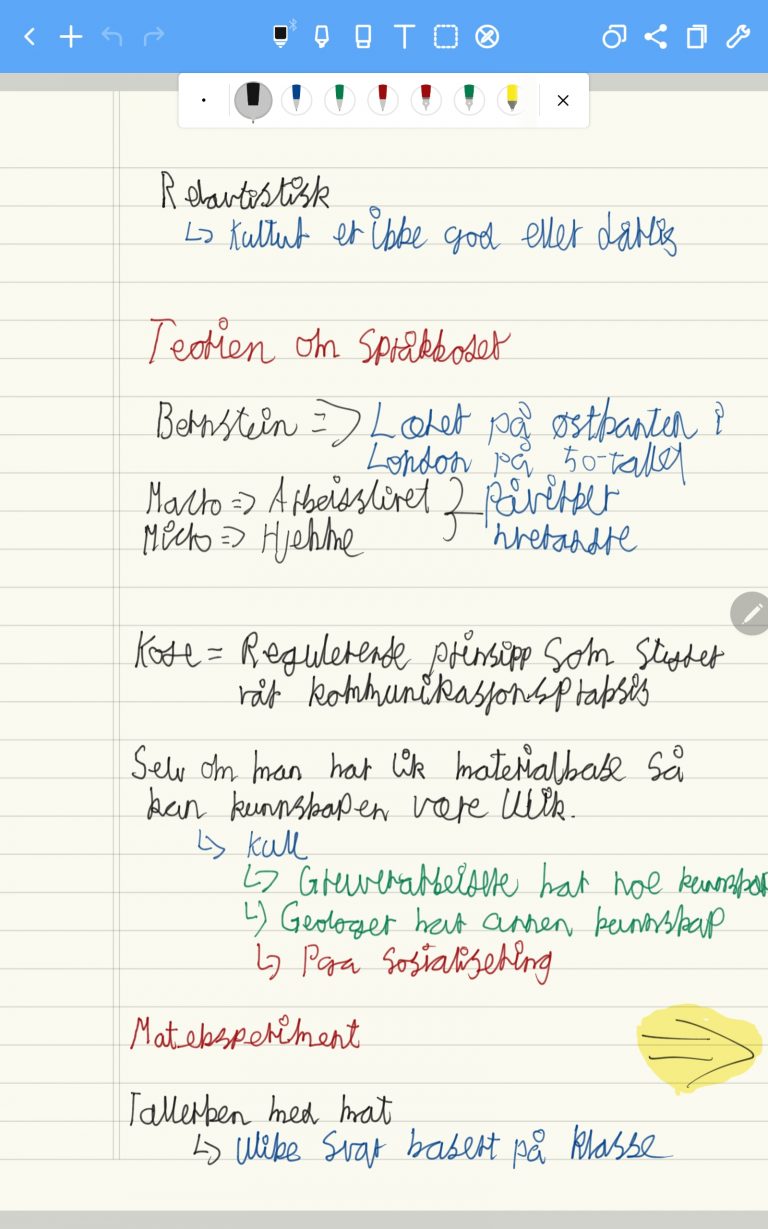 Relavtistisk
↳ Kultur er ikke god eller dårlig
Teorien om språkkoder
Bernstein => Lærer på østkanten i
London på 50-tallet
Macro => Arbeidslivet } påvirker
Micro => Hjemme hverandre
Kode = Regulerende prinsipp som styrer
vår kommunikasjonspraksis
Selv om man har lik materialbase så
kan kunnskapen være ulik.
↳ Kull
↳ Gruverarbeidere har noe kunnskap
↳ Geologer har annen kunnskap
↳ Pga sosialisering
Mateksperiment
Tallerken med mat
↳ Ulike svar basert på klasse